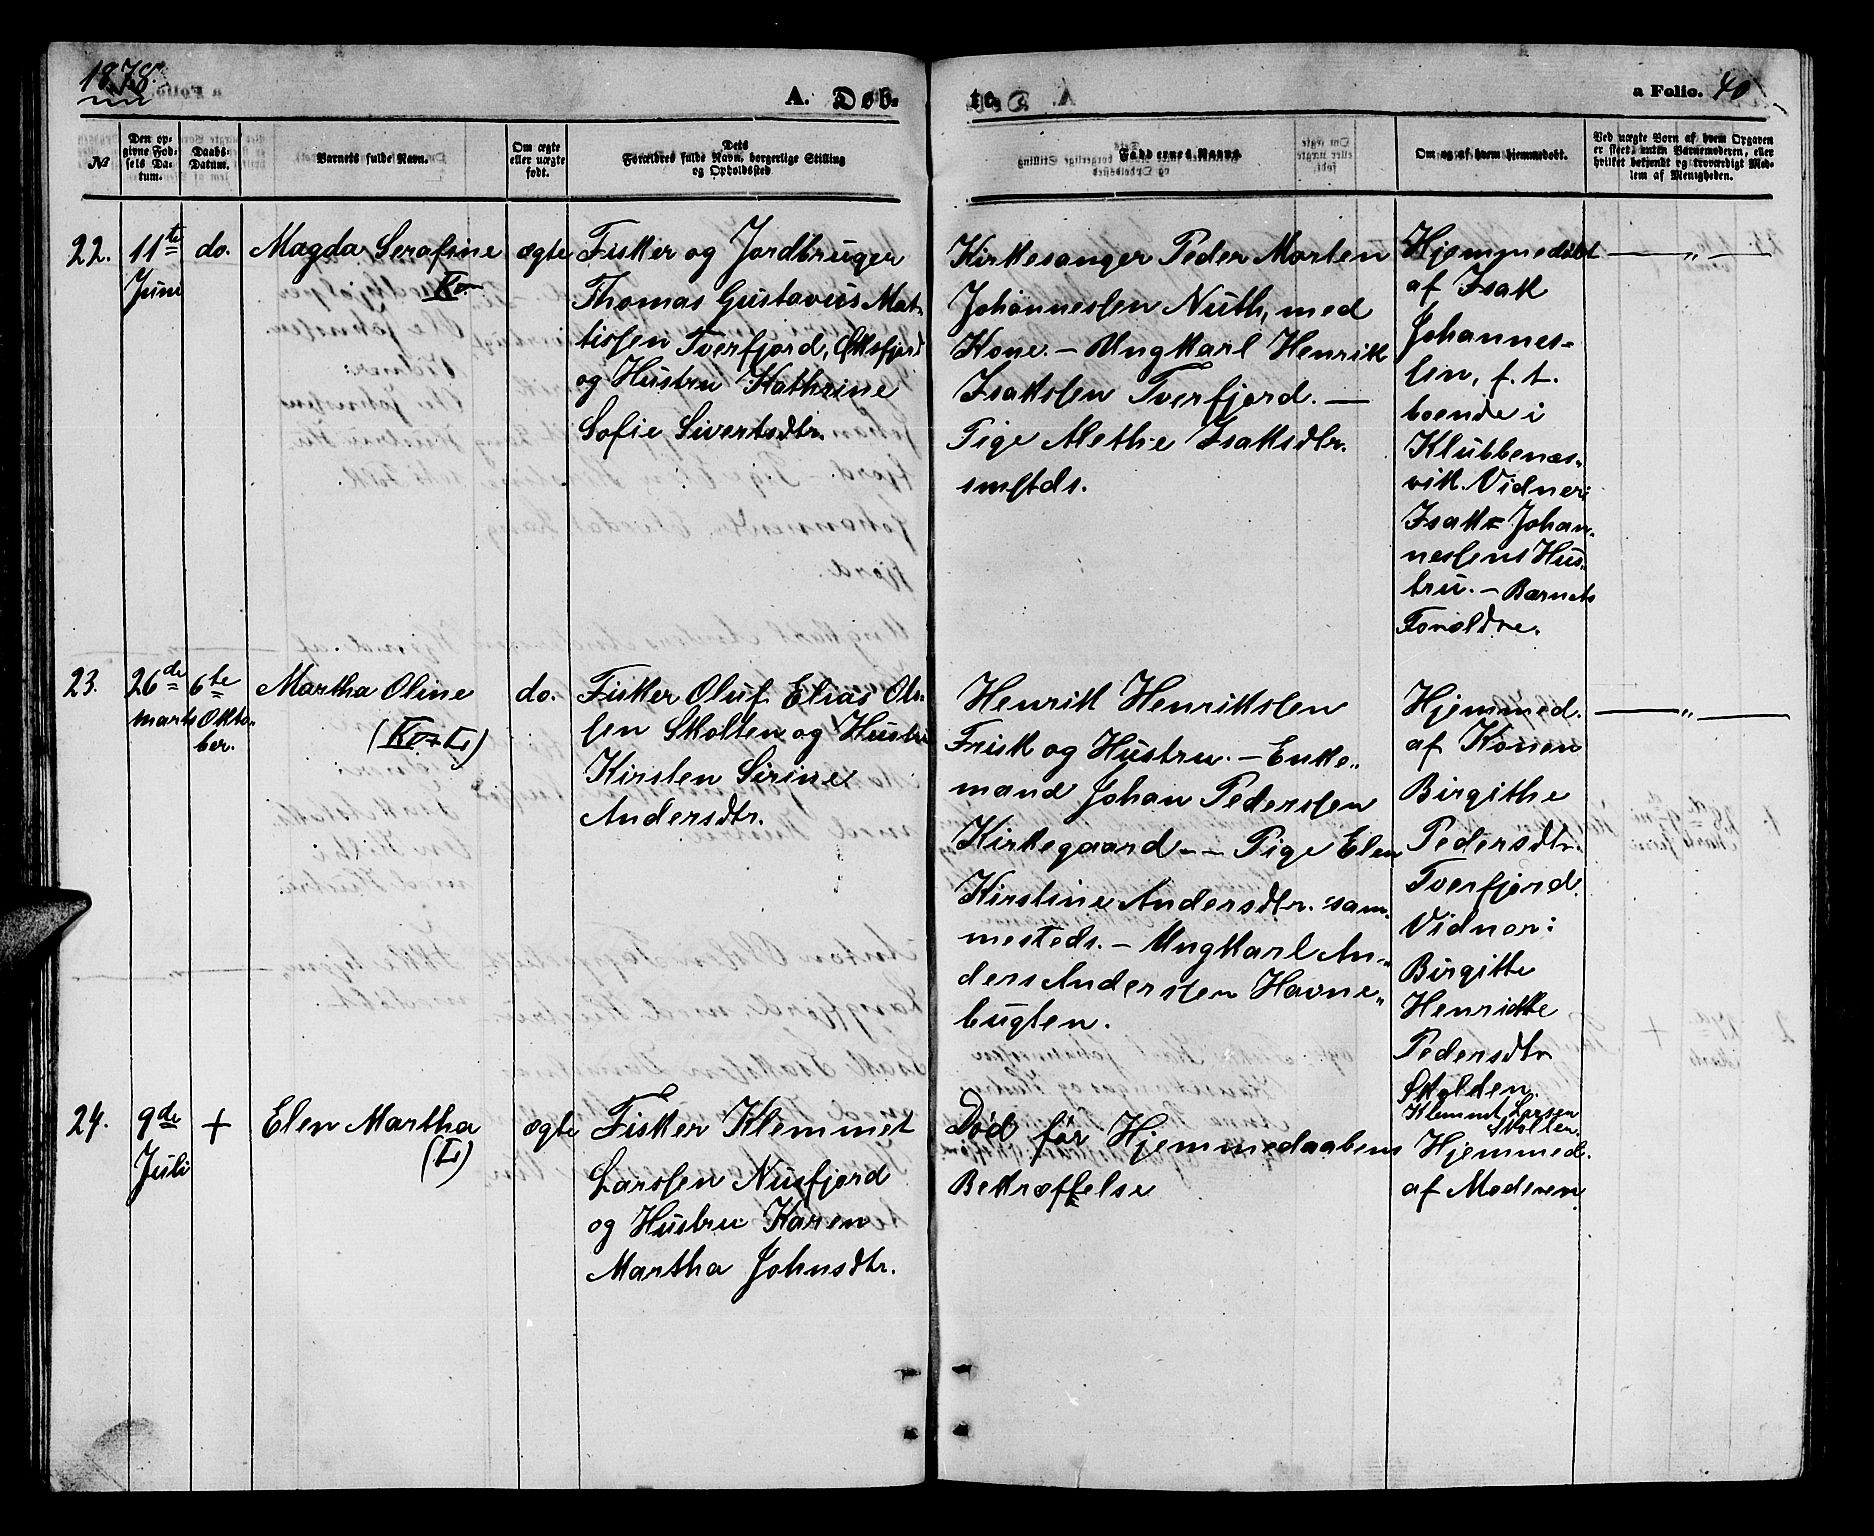 1878.
A. Døb-
te.
a Folio. 40
№
Den op-
givne Fød-
sels Da-
tum.
Daabs-
Datum.
Barnets fulde Navn.
Om ægte
eller uægte
født.
Dets
Forældres fulde Navn, borgerlige Stilling
og Opholdssted
Faddernes Navn.
Om og af hvem hjemmedøbt.
Ved uægte Børn af hvem Opgaven
er skeet, enten Barnemoderen, eller
hvilket bekjendt og troværdigt Med-
lem af Menigheden.
22.
11te
Juni
do.
Magda Serafine
Ko.
ægte
Fisker og Jordbruger
Thomas Gustavius Mat-
tisen Tverfjord,
og Hustru Kathrine
Sofie Sivertsdtr.
Kirkesanger Peder Morten
Johannessen Nuth, med
Kone. – Ungkarl Henrik
Isaksen Tverfjord. —
Pige Alethe Isaksdtr.
smstds.
Hjemmedøbt
af Isak
Johannes-
sen, f. t.
boende i
Klubbenæs-
vik. Vidner:
Isak Johan-
nessens Hus-
tru. – Barnets
Forældre.
— „ —
23.
26de
marts
6te
Okto-
ber.
Martha Oline
(Ko + L)
do.
Fisker Oluf Elias Ol-
sen Skolten og Hustru
Kirsten Sirine
Andersdtr.
Henrik Henriksen
Frisk og Hustru. – Enke-
mand Johan Pedersen
Kirkegaard – – Pige Elen
Kirstine Andersdtr. sam-
mesteds. – Ungkarl An-
ders Andersen Havne-
bugten.
Hjemmed.
af Konen
Birgithe
Pedersdtr.
Tverfjord.
Vidner:
Birgitte
Henrikke
Pedersdtr
Skolden.
Klemmet Larsen
Skolten.
— „ —
24.
9de
Juli
+
Elen Martha
(L)
ægte
Fisker Klemmet
Larsen Nuvfjord
og Hustru Karen
Martha Johnsdtr.
Død før Hjemmedaabens
Bekræftelse
Hjemmed.
af Moderen